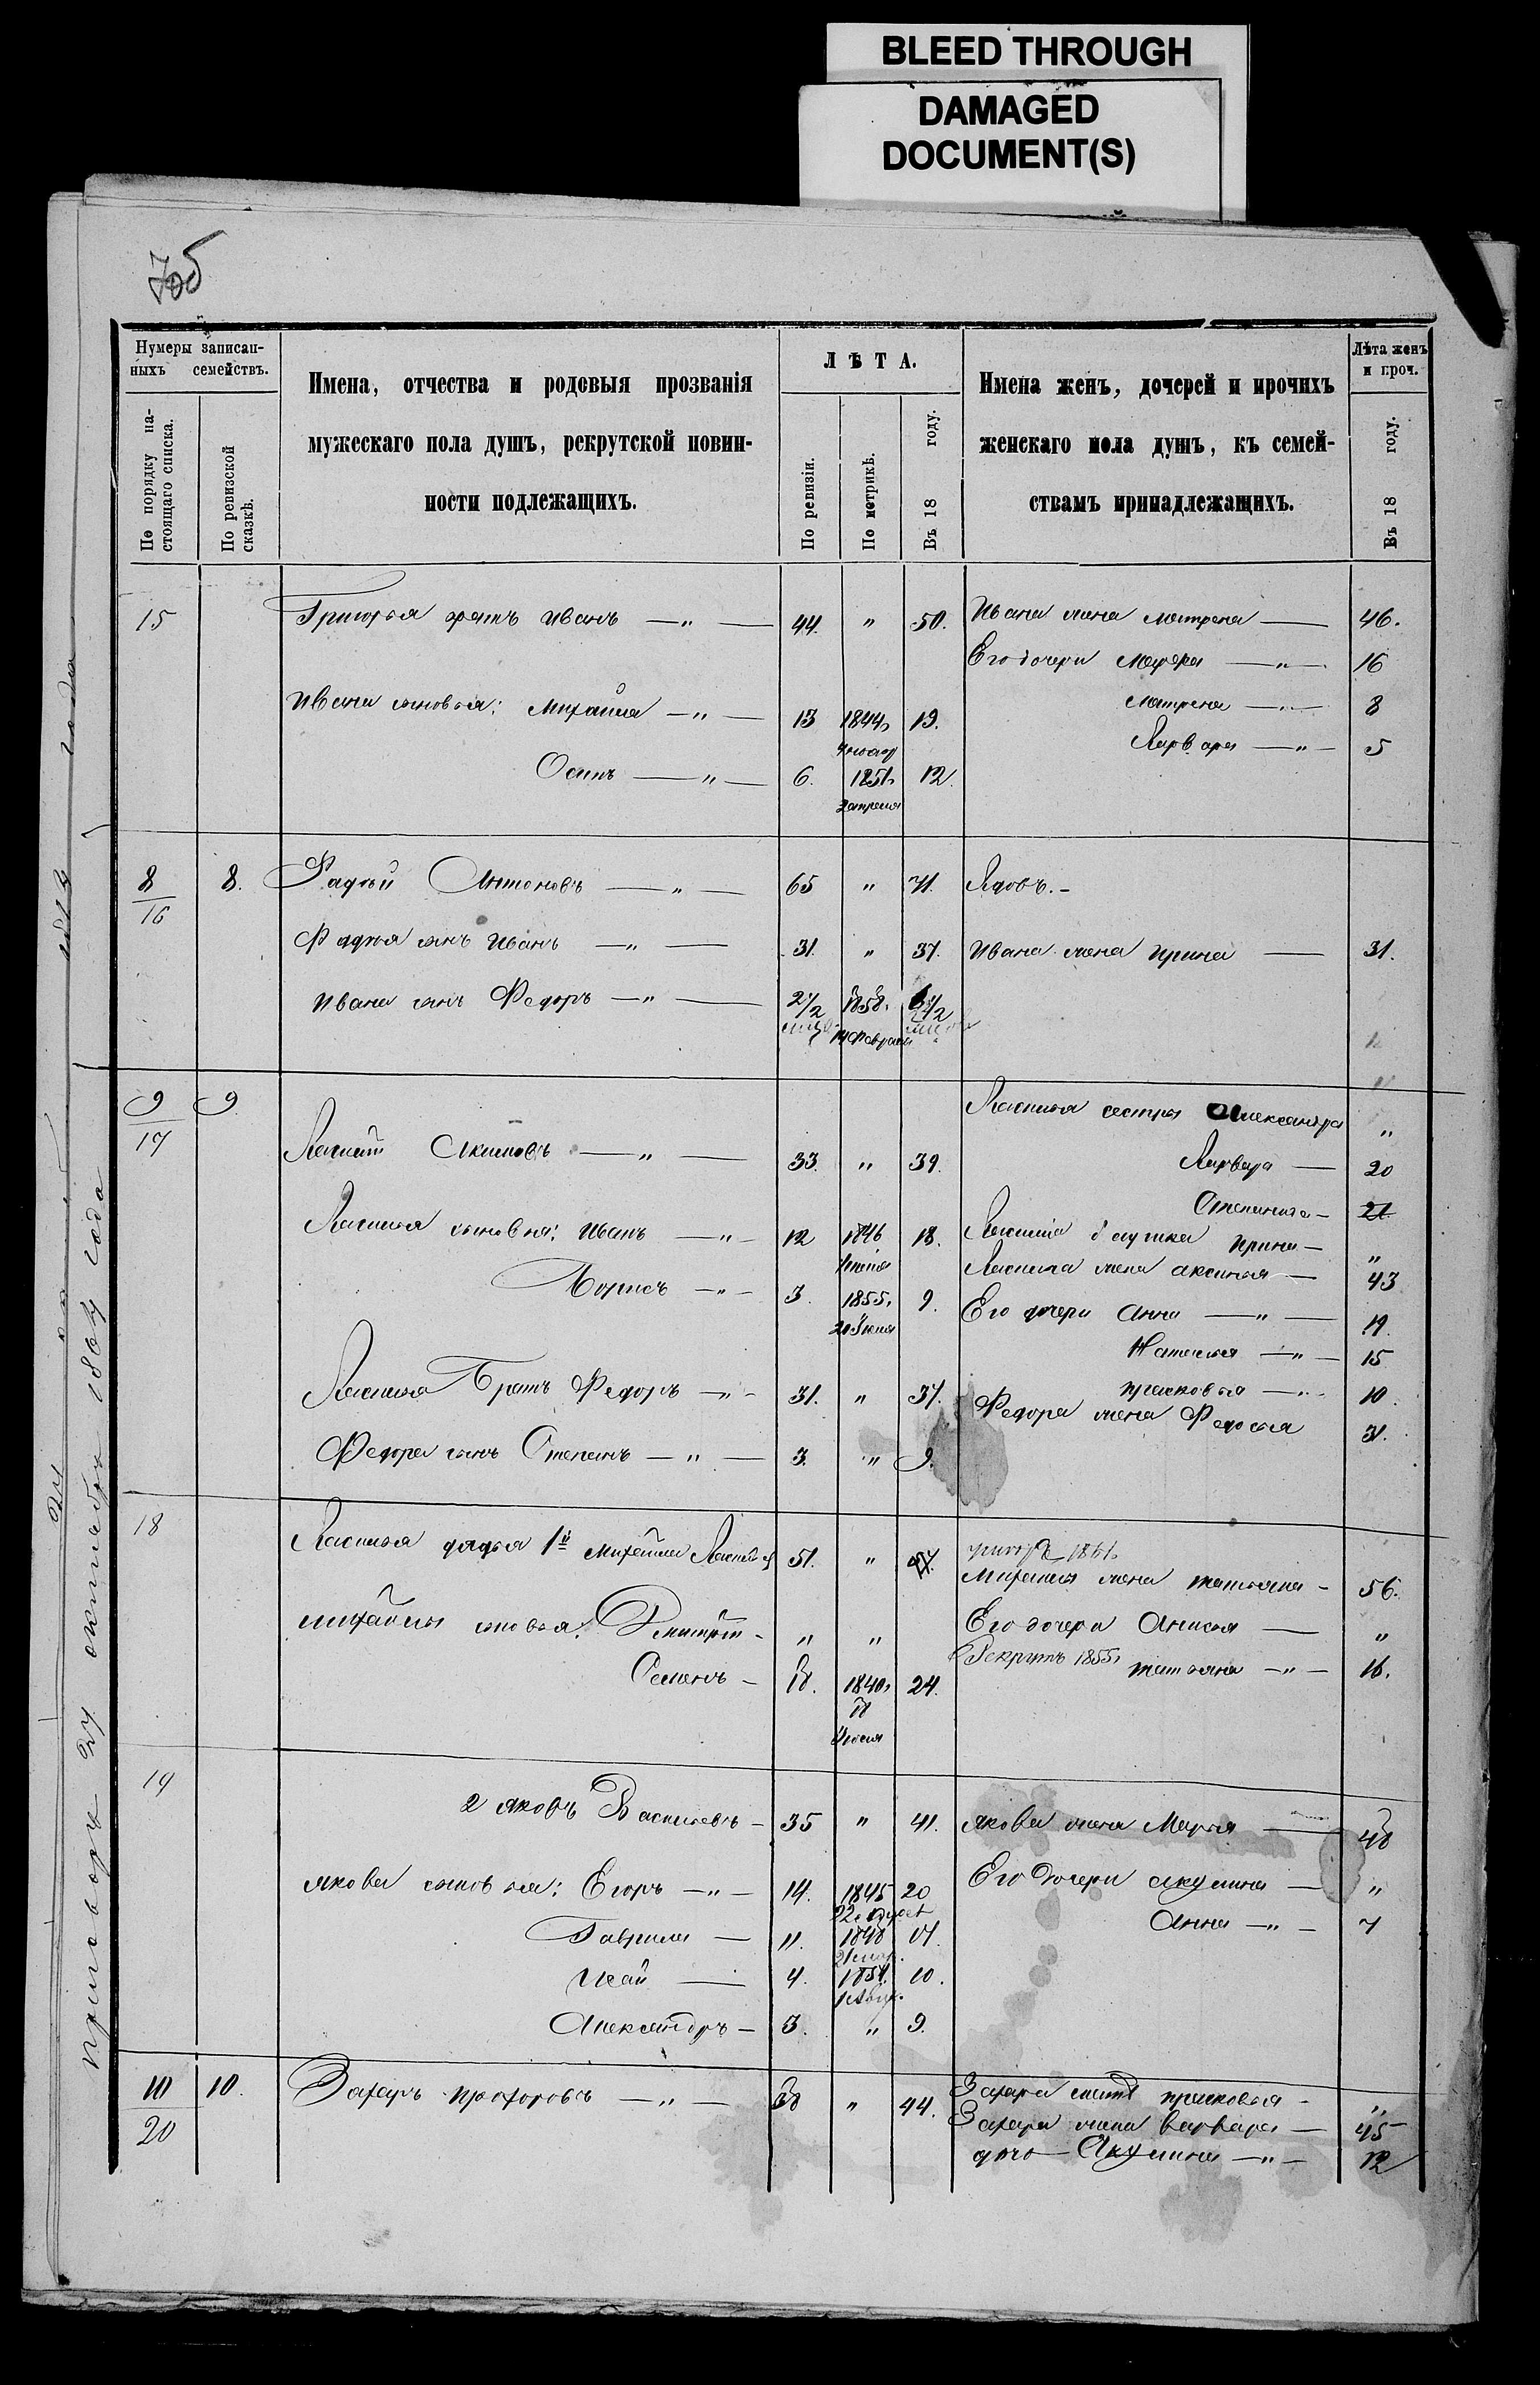 BLEED THROUGH
DAMAGED
DOCUMENT(S)
705
Нумеры записан-
ныхъ семействъ.
По порядку на-
стоящаго списка.
По ревизской
сказкѣ.
Имена, отчества и родовыя прозванія
мужескаго пола душъ, рекрутской повин-
ности подлежащихъ.
ЛѢТА.
По ревизіи.
По метрикѣ.
Въ 18 году.
Имена женъ, дочерей и прочихъ
женскаго пола душъ, къ семей-
ствамъ принадлежащихъ.
Лѣта женъ
и проч.
Въ 18 году.
15 Григорья братъ Иванъ — " — 44. " 50. Ивана жена Матрена — 46.
Его дочери — " — 16
Ивана сыновья: Михайла — " — 13 1844, 19. Матрена — " — 8
Варвара — " — 5
Осипъ — " — 6. 1851, 12.
2 апреля
8/16 8. Фадѣй Антоновъ — " — 65 " 71. Вдовъ. -
Фадѣя сынъ Иванъ — " — 31. " 37. Ивана жена Ирина — 31.
Ивана сынъ Федоръ — " — 2 1/2 1858,
Февраля
9/17 9 Василья сестры Александра "
Василій Акимовъ — " — 33. " 39. Варвара — 20
Степанида - 21.
Василья сыновья: Иванъ — " - 12 1846 18. Василья Ирина - "
Василья жена Аксинья — 43
Борисъ — " - 3. 1855, 9. Его дочери Анна — " — 19.
Іюня
Наталья — " — 15
Василья Братъ Федоръ — " - 31. " 37. Прасковья — " - 10.
Федора жена Федосья 31.
Федора сынъ Степанъ — " — 3. " 9.
18 Василья дядья 1й Михайла 51. " 57. 1861,
Михайлы жена Татьяна - 56.
Михайлы сыновья: Дмитрій - " " Его дочери Анисья — "
Рекрутъ 1855,
Семенъ - 18. 1840, 24. Татьяна — " — 16.
19 2 Яковъ Васильевъ - 35 " 41. Якова жена Марья — 40
Якова сыновья: Егоръ — " — 14. 1845 20 Его дочери Акулина — "
Гаврила — 11. 1848 17. Анна — " - 7
Исай — 4. 1854. 10.
Александръ - 3. " 9.
10/20 10. Захаръ Прохоровъ — " — 38 " 44. Захара мать Прасковья - "
Захара жена Варвара — 45
дочь Акулина — " — 12
приговоръ 24 октября 1864 года